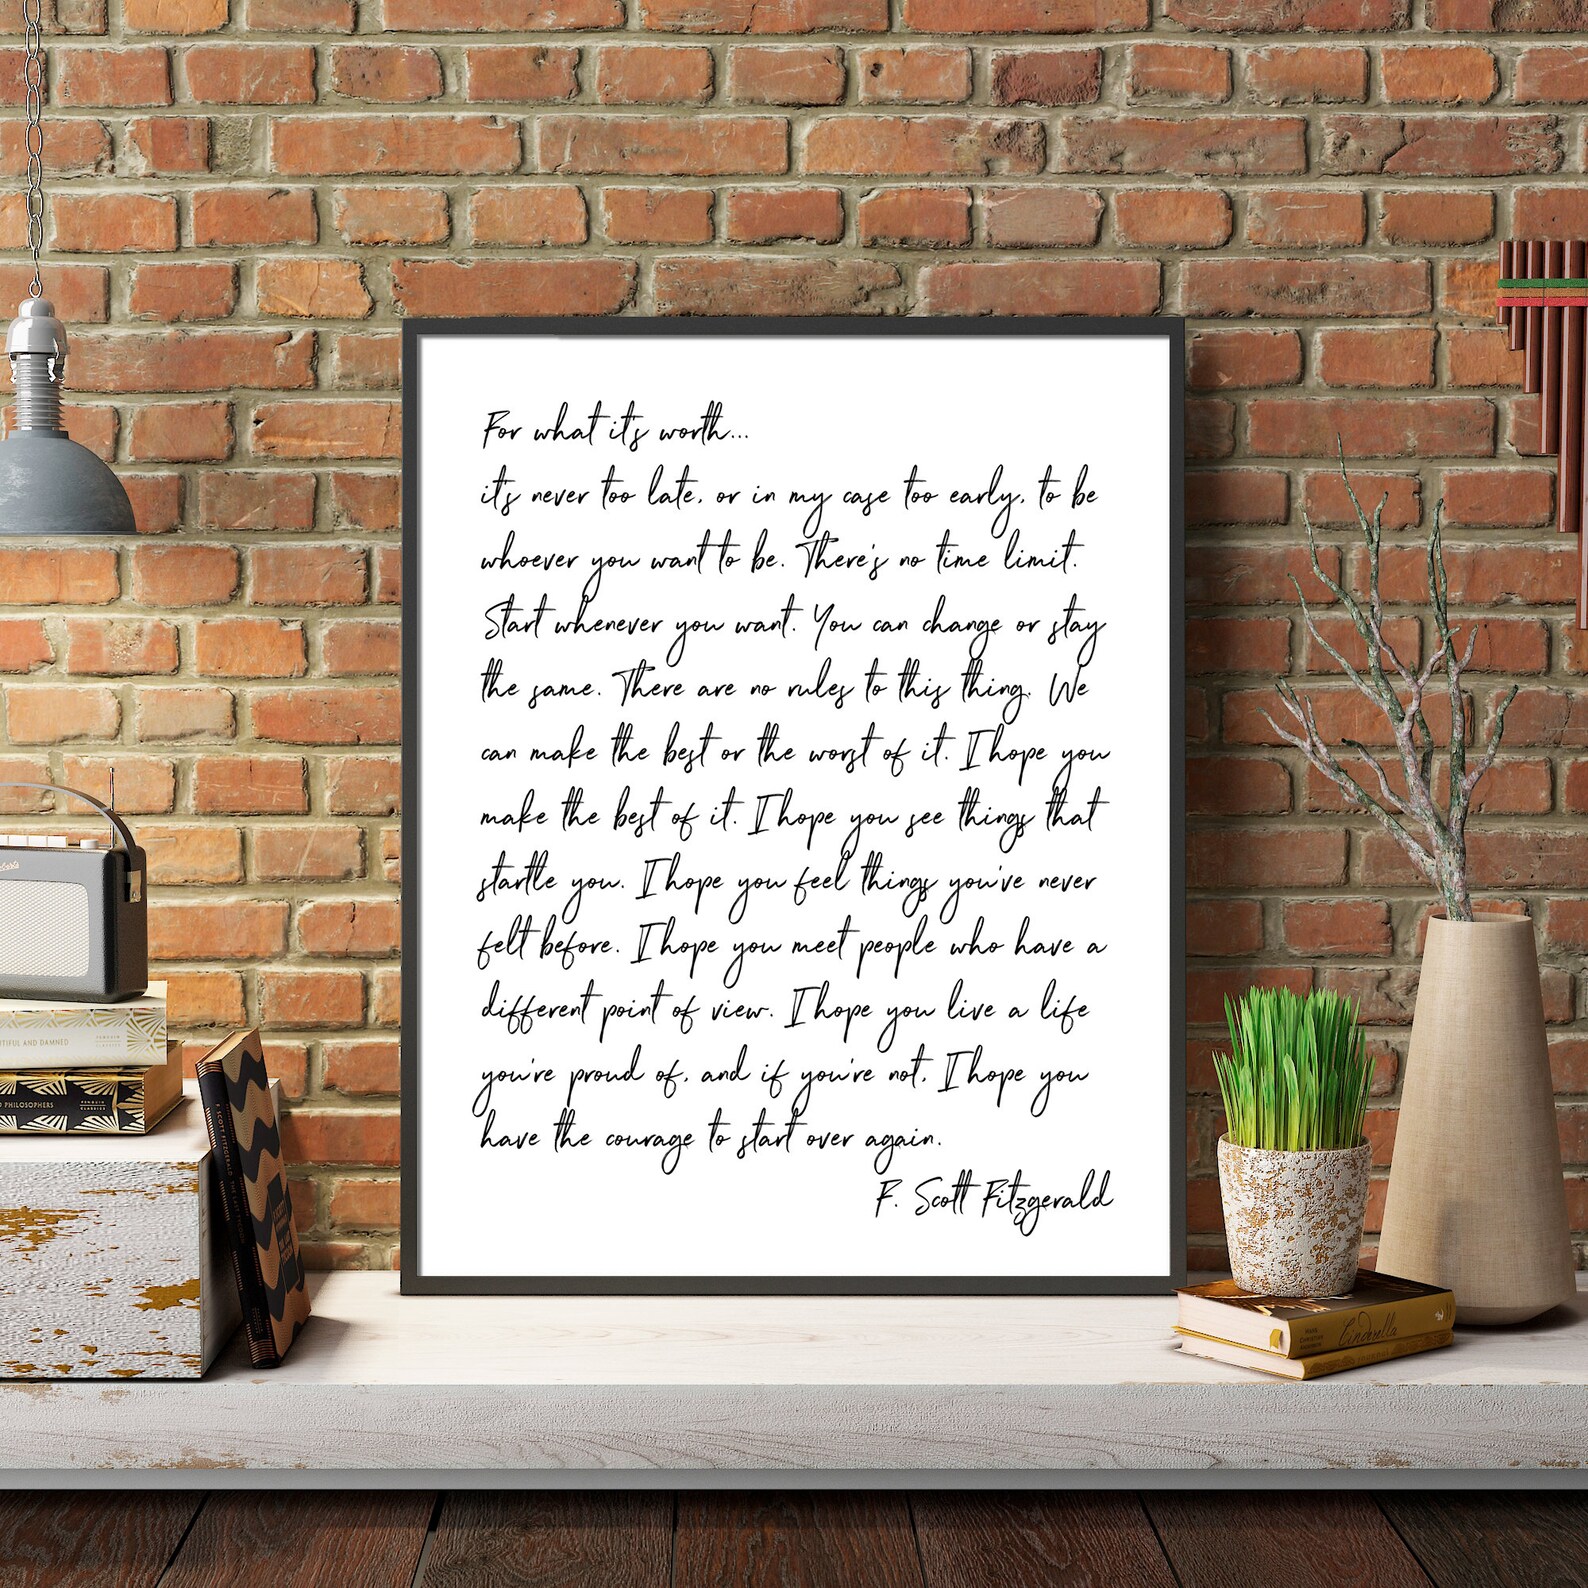 For what it's worth...
it's never too late, or in my case too early, to be
whoever you want to be. There's no time limit.
Start whenever you want. You can change or stay
the same. There are no rules to this thing. We
can make the best or the worst of it. I hope you
make the best of it. I hope you see things that
startle you. I hope you feel things you've never
felt before. I hope you meet people who have a
different point of view. I hope you live a life
you're proud of, and if you're not, I hope you
have the courage to start over again.
F. Scott Fitzgerald
TIFUL AND DAMNED
PHILOSOPHERS
PENGUIN
CLASSICS
F. SCOTT FITZGERALD
Cinderella